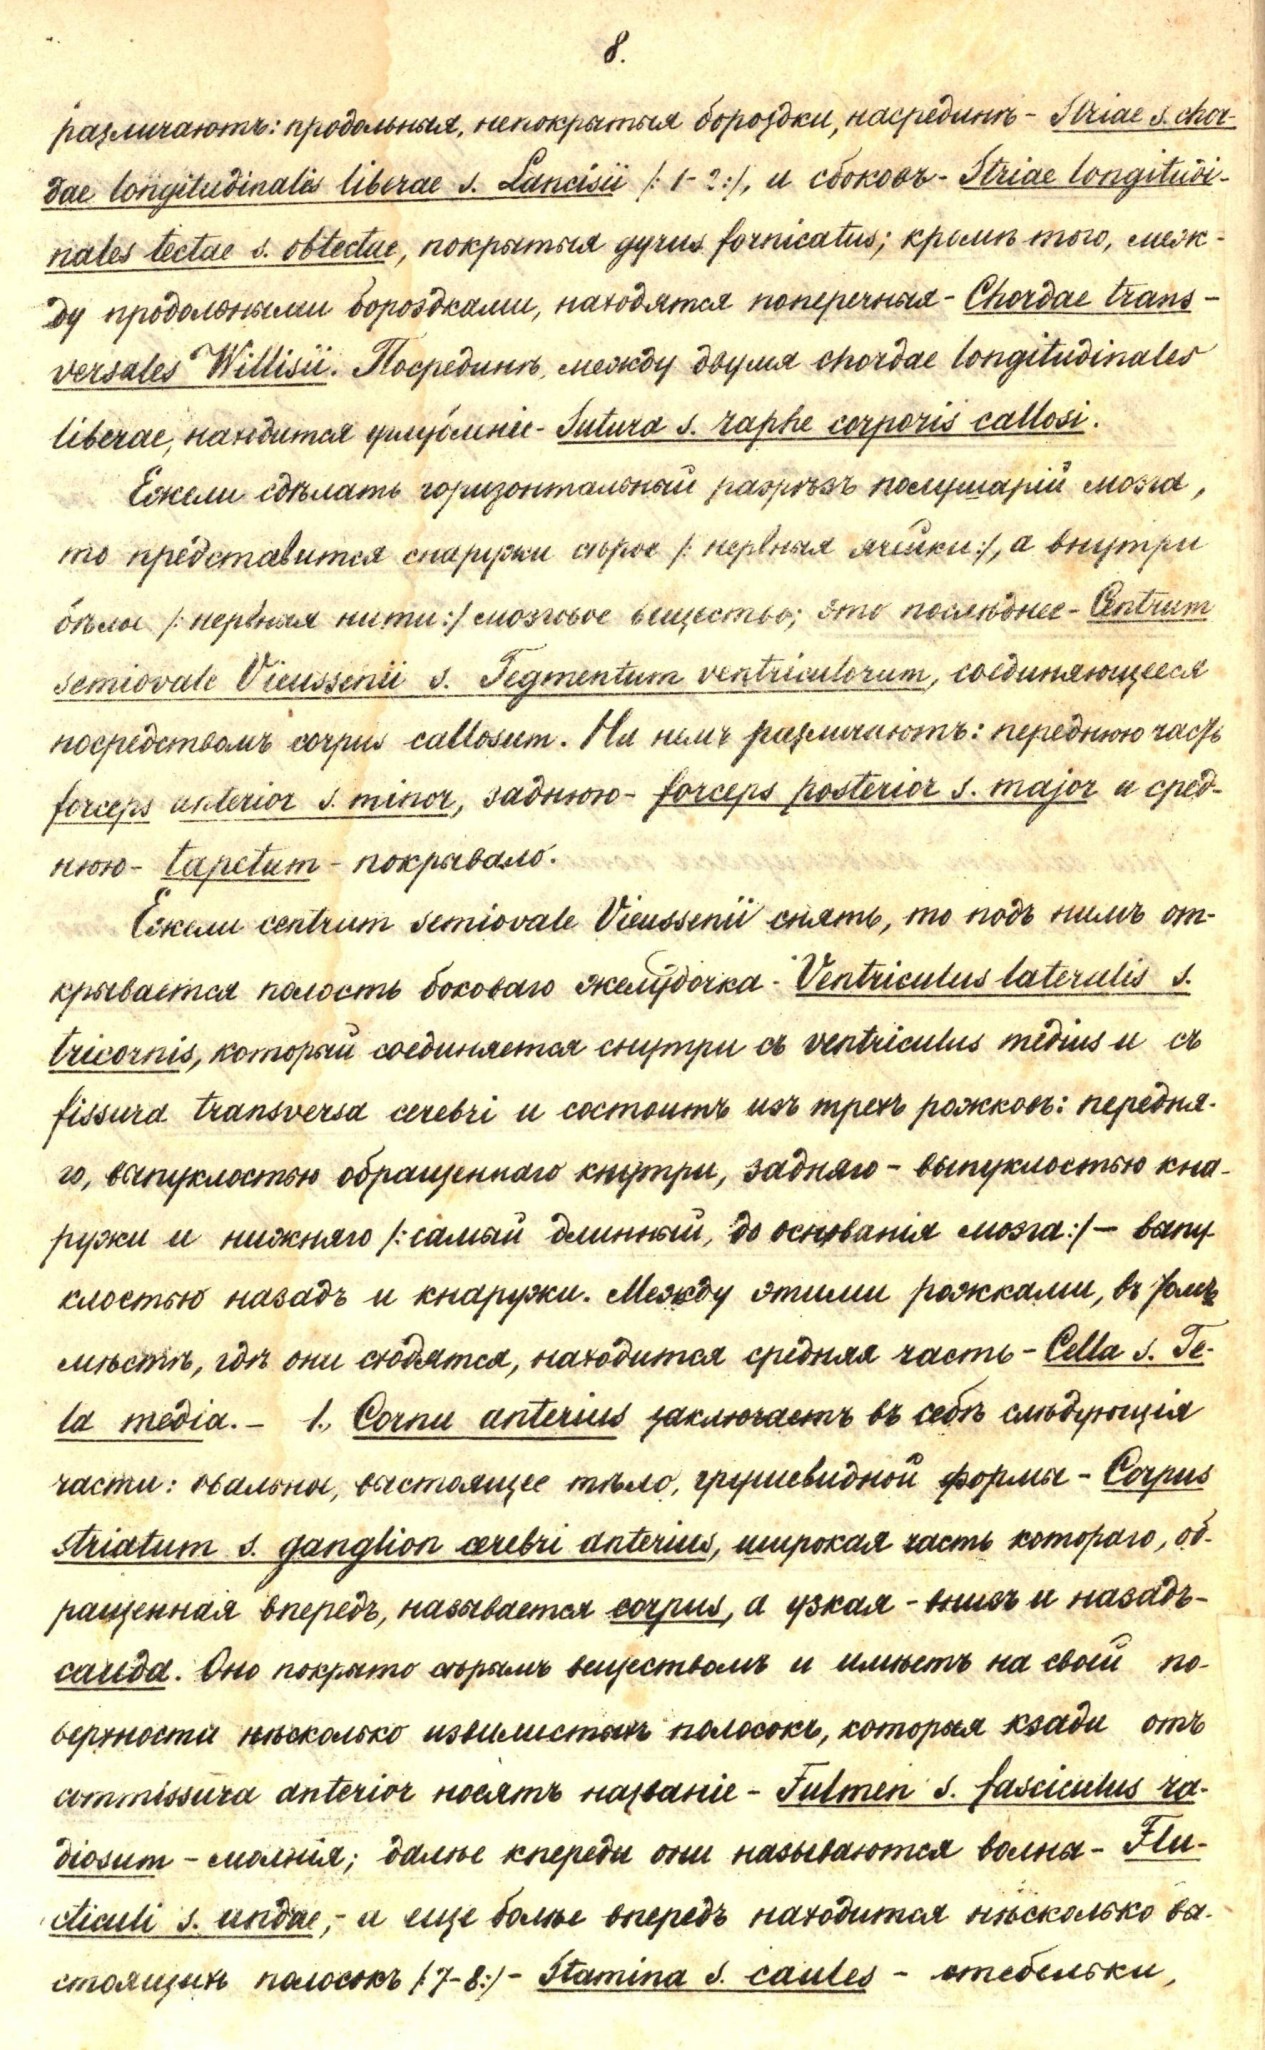 8.
различаютъ: продольныя, непокрытыя бороздки, насрединѣ - Striae s. chor-
dae longitudinales liberae s. Lancisii /: 1-2 :/, и сбоковъ - Striae longitudi-
nales tectae s. obtectae, покрытыя gyrus fornicatus; кромѣ того, меж-
ду продольными бороздками, находятся поперечныя - Chordae trans-
versales Willisii. Посрединѣ, между двумя chordae longitudinales
liberae, находится углубленіе - Sutura s. raphe corporis callosi.
Ежели сдѣлать горизонтальный разрѣзъ полушарій мозга,
то представится снаружи сѣрое /: нервныя ячейки :/, а внутри
бѣлое /: нервныя нити :/ мозговое вещество; это послѣднее - Centrum
semiovale Vieussenii s. Tegmentum ventriculorum, соединяющееся
посредствомъ corpus callosum. На немъ различаютъ: переднюю часть
forceps anterior s. minor, заднюю - forceps posterior s. major и сред-
нюю - tapetum - покрывало.
Ежели centrum semiovale Vieussenii снять, то подъ нимъ от-
крывается полость боковаго желудочка - Ventriculus lateralis s.
tricornis, который соединяется снутри съ ventriculus medius и съ
fissura transversa cerebri и состоитъ изъ трехъ рожковъ: передня-
го, выпуклостью обращеннаго кнутри, задняго - выпуклостью кна-
ружи и нижняго /: самый длинный, до основанія мозга :/ - выпу-
клостью назадъ и кнаружи. Между этими рожками, въ томъ
мѣстѣ, гдѣ они сходятся, находится средняя часть - Cella s. Te-
la media. - 1., Cornu anterius заключаетъ въ себѣ слѣдующія
части: овальное, выстоящее тѣло, грушевидной формы - Corpus
striatum s. ganglion cerebri anterius, широкая часть котораго, об-
ращенная впередъ, называется corpus, а узкая - внизъ и назадъ -
cauda. Оно покрыто сѣрымъ веществомъ и имѣетъ на своей по-
верхности нѣсколько извилистыхъ полосокъ, которыя кзади отъ
commissura anterior носятъ названіе - Fulmen s. fasciculus ra-
diosum - молнія; далѣе кпереди они называются волны - Flu-
cticuli s. undae, - и еще болѣе впередъ находится нѣсколько вы-
стоящихъ полосокъ /: 7-8 :/ - Stamina s. caules - стебельки,